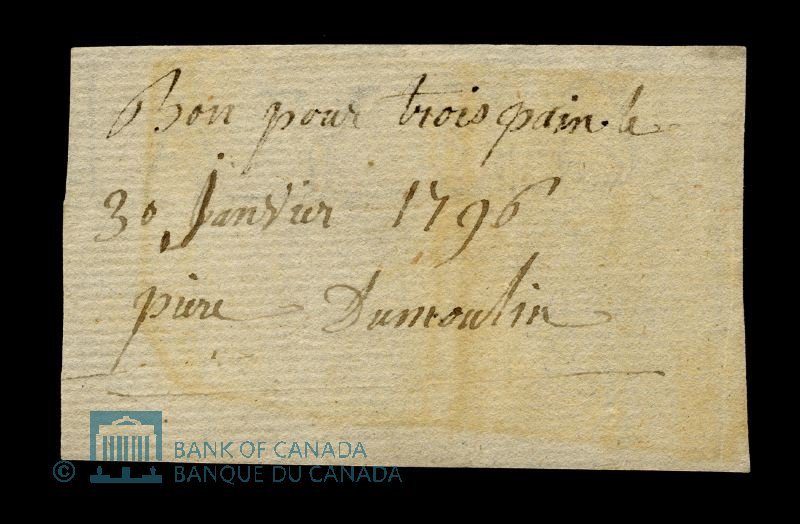 Bon pour trois pain. le
30 Janvier 1796
piere Dumoulin
© BANK OF CANADA
BANQUE DU CANADA